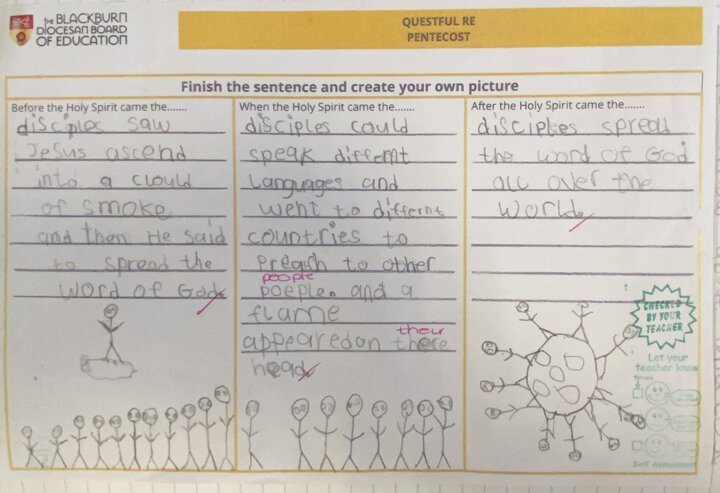 THE BLACKBURN
DIOCESAN BOARD
OF EDUCATION
QUESTFUL RE
PENTECOST
Finish the sentence and create your own picture
Before the Holy Spirit came the.......
disciples saw
Jesus ascend
into a clould
of smoke
and then He said
to spread the
word of God.
When the Holy Spirit came the.......
disciples could
speak differnt
languages and
went to differnt
countries to
preach to other
people
poeple. and a
flame
their
appeared on there
head.
After the Holy Spirit came the.......
disciples spread
the word of God
all over the
world.
CHECKED
BY YOUR
TEACHER
Let your
teacher know
Self Assessment